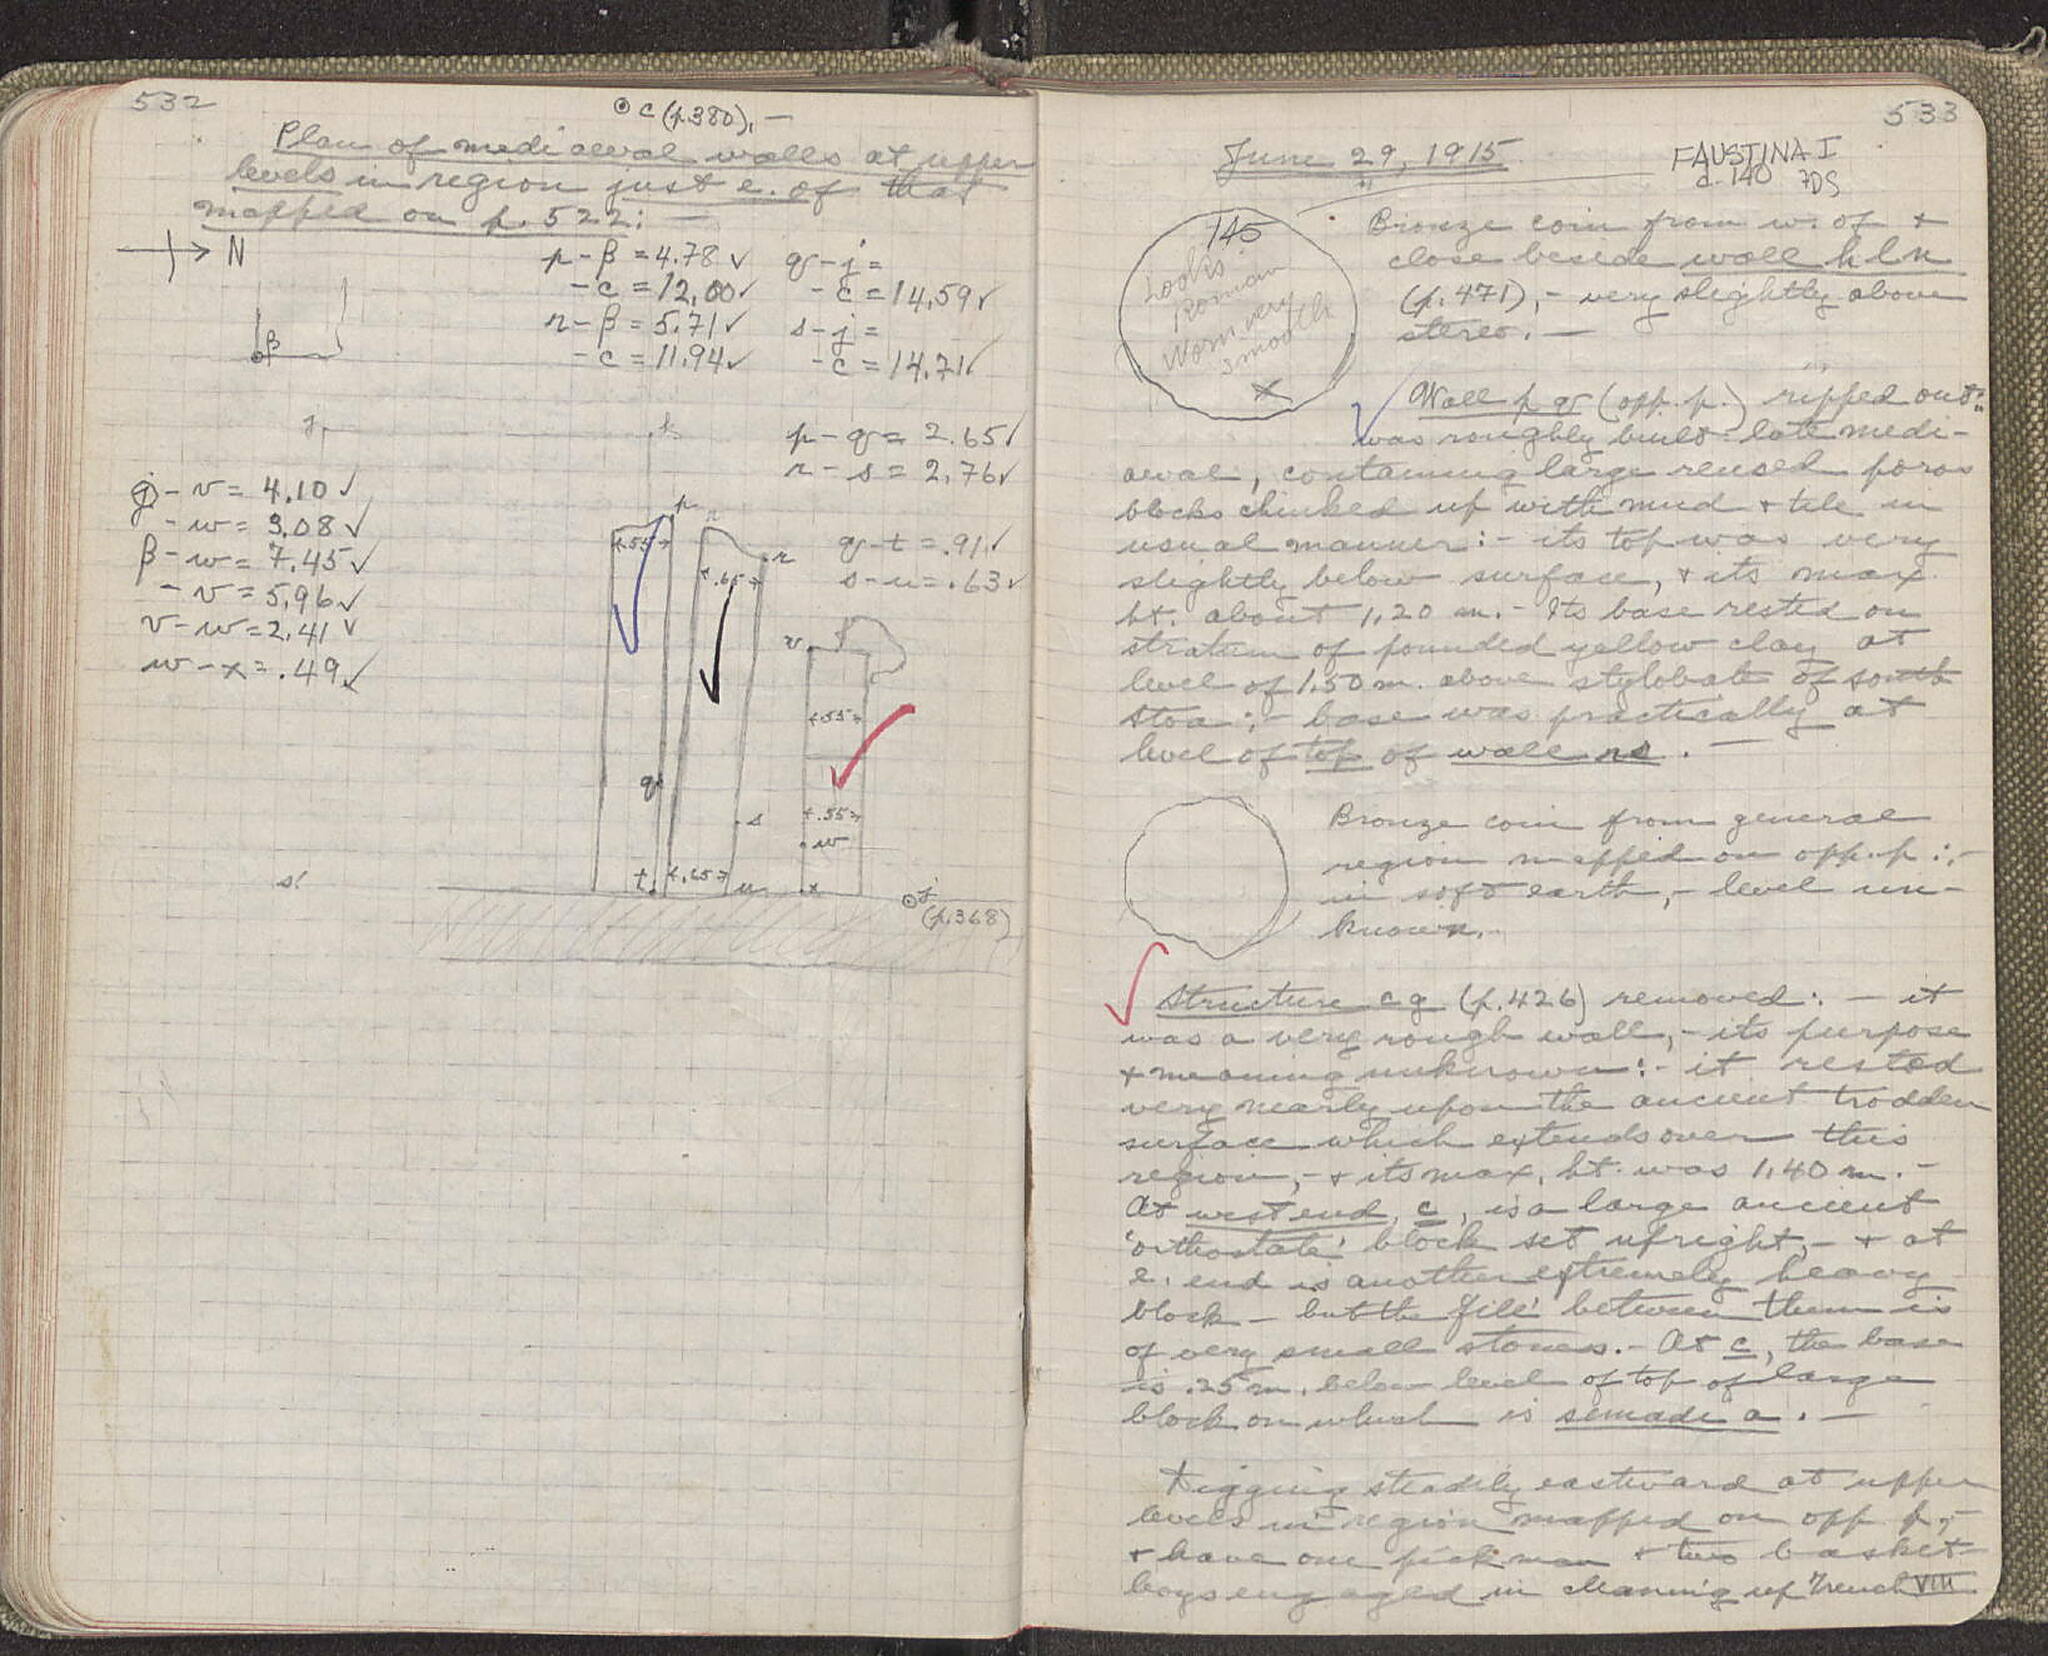 532
⊙ c (p. 380), —
Plan of mediaeval walls at upper
levels in region just e. of that
mapped on p. 522: —
N
p – β = 4.78 ✓
– c = 12.00 ✓
r – β = 5.71 ✓
– c = 11.94 ✓
q – j =
– c = 14.59 ✓
s – j =
– c = 14.71 ✓
β
p – q = 2.65 ✓
r – s = 2.76 ✓
j – v = 4.10 ✓
– w = 3.08 ✓
β – w = 7.45 ✓
– v = 5.96 ✓
v – w = 2.41 ✓
w – x = .49 ✓
q – t = .91 ✓
s – u = .63 ✓
k
p
.55
r
.65
v
.55
q
s
.55
w
t
.65
u
x
⊙ j
(p. 368)
533
June 29, 1915
FAUSTINA I
c. 140 7DS
145
Looks
Roman
Worn very
smooth
X
Bronze coin from w. of +
close beside wall hln
(p. 471), – very slightly above
stereo. —
Wall p q (opp. p.) ripped out:
was roughly built late medi-
aeval, containing large reused poros
blocks chinked up with mud + tile in
usual manner: – its top was very
slightly below surface, + its max.
ht. about 1.20 m. – Its base rested on
stratum of pounded yellow clay at
level of 1.50 m. above stylobate of south
stoa; – base was practically at
level of top of wall rs. —
Bronze coin from general
region mapped on opp. p.: –
in soft earth, – level un-
known. –
Structure cg (p. 426) removed: – it
was a very rough wall, – its purpose
+ meaning unknown: – it rested
very nearly upon the ancient trodden
surface which extends over this
region, – + its max. ht. was 1.40 m. –
At west end, c, is a large ancient
'orthostate' block set upright, – + at
e. end is another extremely heavy
block – but the 'fill' between them is
of very small stones. – At c, the base
is .25 m. below level of top of large
block on which is semadi a. —
Digging steadily eastward at upper
levels in region mapped on opp. p, –
+ have one pickman + two basket
boys engaged in cleaning up Trench VIII